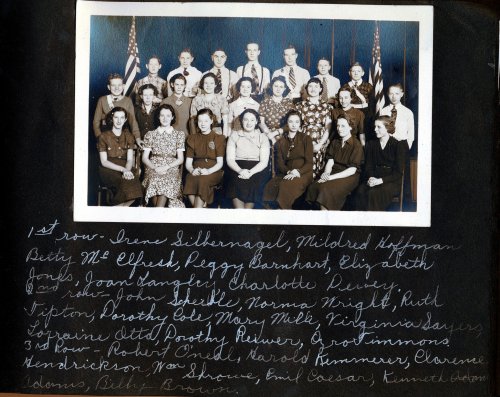 1st row - Irene Silbernagel, Mildred Hoffman
Betty Mc Elfresh, Peggy Barnhart, Elizabeth
Jones, Joan Langley, Charlotte Dewey.
2nd row - John Scherble, Norma Wright, Ruth
Tipton, Dorothy Cole, Mary Milk, Virginia Sayers,
Lorraine Otta, Dorothy Reswer, Ogro Timmons.
3rd Row - Robert O'neal, Harold Kemmerer, Clarence
Hendrickson, Wm Shrowe, Emil Caesar, Kenneth
Adams, Billy Brown.